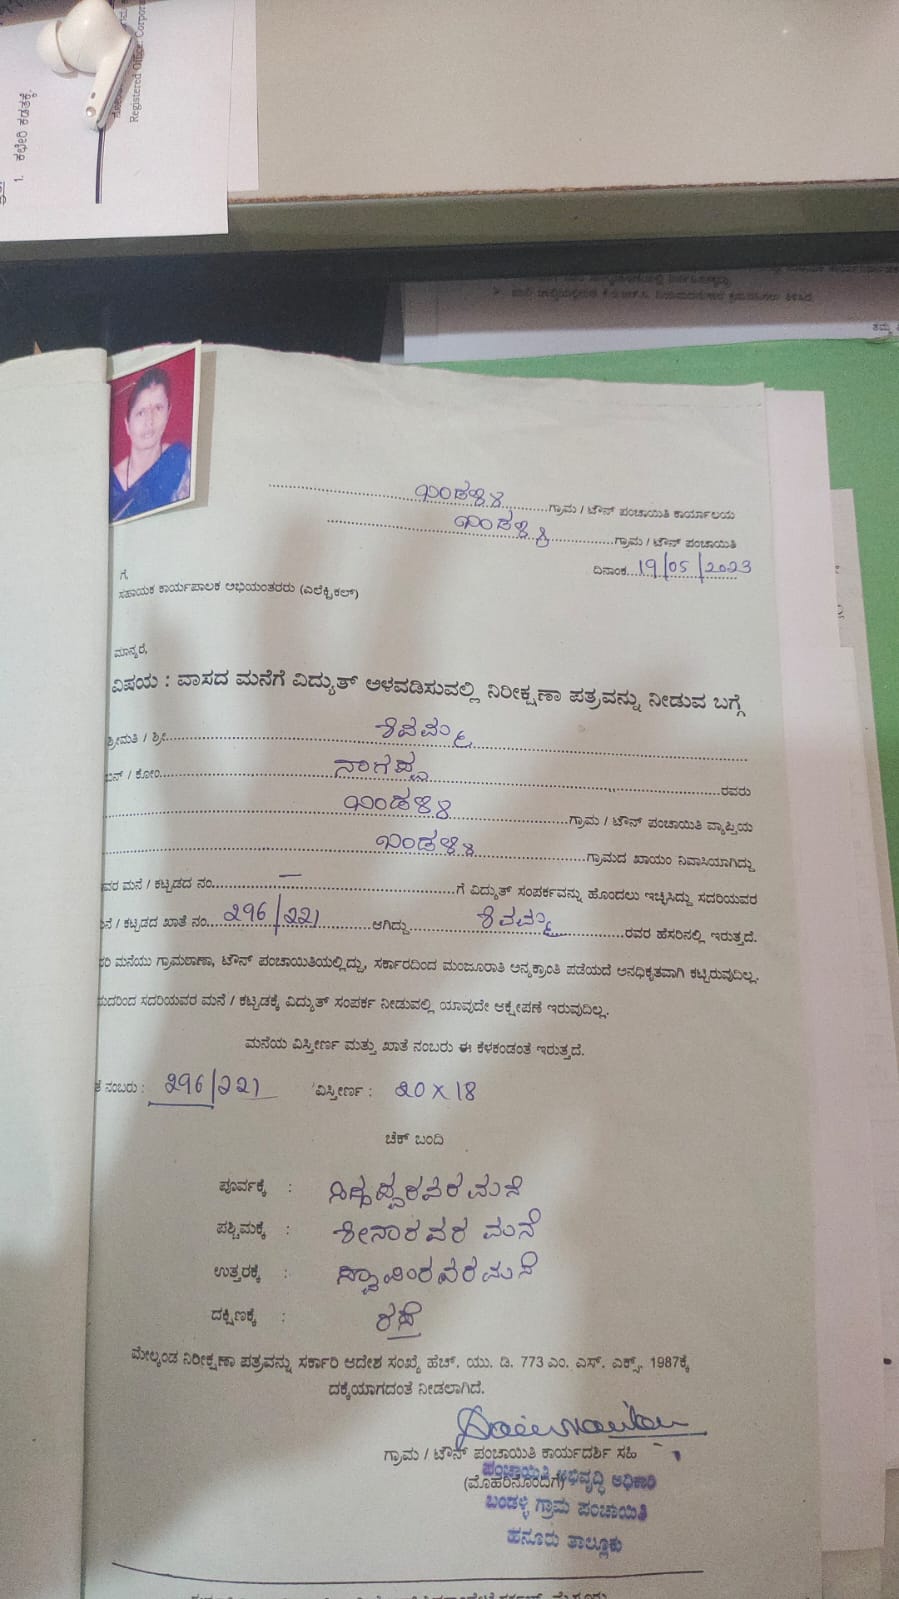 1. ಕಛೇರಿ ಕಡತಕ್ಕೆ.
ಬಂಡಳ್ಳಿ ಗ್ರಾಮ / ಟೌನ್ ಪಂಚಾಯಿತಿ ಕಾರ್ಯಾಲಯ
ಬಂಡಳ್ಳಿ ಗ್ರಾಮ / ಟೌನ್ ಪಂಚಾಯಿತಿ
ದಿನಾಂಕ 19/05/2023
ಗೆ,
ಸಹಾಯಕ ಕಾರ್ಯಪಾಲಕ ಅಭಿಯಂತರರು (ಎಲೆಕ್ಟ್ರಿಕಲ್)
ಮಾನ್ಯರೆ,
ವಿಷಯ : ವಾಸದ ಮನೆಗೆ ವಿದ್ಯುತ್ ಅಳವಡಿಸುವಲ್ಲಿ ನಿರೀಕ್ಷಣಾ ಪತ್ರವನ್ನು ನೀಡುವ ಬಗ್ಗೆ
ಶ್ರೀಮತಿ / ಶ್ರೀ ಶಿವಮ್ಮ
ಬಿನ್ / ಕೋಂ ನಾಗಪ್ಪ ರವರು
ಬಂಡಳ್ಳಿ ಗ್ರಾಮ / ಟೌನ್ ಪಂಚಾಯಿತಿ ವ್ಯಾಪ್ತಿಯ
ಬಂಡಳ್ಳಿ ಗ್ರಾಮದ ಖಾಯಂ ನಿವಾಸಿಯಾಗಿದ್ದು
ಮನೆ / ಕಟ್ಟಡದ ನಂ. — ಗೆ ವಿದ್ಯುತ್ ಸಂಪರ್ಕವನ್ನು ಹೊಂದಲು ಇಚ್ಛಿಸಿದ್ದು ಸದರಿಯವರ
/ ಕಟ್ಟಡದ ಖಾತೆ ನಂ. 296/221 ಆಗಿದ್ದು ಶಿವಮ್ಮ ರವರ ಹೆಸರಿನಲ್ಲಿ ಇರುತ್ತದೆ.
ಮನೆಯು ಗ್ರಾಮಠಾಣಾ, ಟೌನ್ ಪಂಚಾಯಿತಿಯಲ್ಲಿದ್ದು, ಸರ್ಕಾರದಿಂದ ಮಂಜೂರಾತಿ ಅನ್ಯಕ್ರಾಂತಿ ಪಡೆಯದೆ ಅನಧಿಕೃತವಾಗಿ ಕಟ್ಟಿರುವುದಿಲ್ಲ.
ಸದರಿಯವರ ಮನೆ / ಕಟ್ಟಡಕ್ಕೆ ವಿದ್ಯುತ್ ಸಂಪರ್ಕ ನೀಡುವಲ್ಲಿ ಯಾವುದೇ ಆಕ್ಷೇಪಣೆ ಇರುವುದಿಲ್ಲ.
ಮನೆಯ ವಿಸ್ತೀರ್ಣ ಮತ್ತು ಖಾತೆ ನಂಬರು ಈ ಕೆಳಕಂಡಂತೆ ಇರುತ್ತದೆ.
ನಂಬರು : 296/221 ವಿಸ್ತೀರ್ಣ : 20 x 18
ಚೆಕ್ ಬಂದಿ
ಪೂರ್ವಕ್ಕೆ : ಸಿದ್ದಪ್ಪರವರ ಮನೆ
ಪಶ್ಚಿಮಕ್ಕೆ : ಶೀನಾರವರ ಮನೆ
ಉತ್ತರಕ್ಕೆ : ರವರ ಮನೆ
ದಕ್ಷಿಣಕ್ಕೆ : ರಸ್ತೆ
ಮೇಲ್ಕಂಡ ನಿರೀಕ್ಷಣಾ ಪತ್ರವನ್ನು ಸರ್ಕಾರಿ ಆದೇಶ ಸಂಖ್ಯೆ ಹೆಚ್. ಯು. ಡಿ. 773 ಎಂ. ಎಸ್. ಎಕ್ಸ್. 1987ಕ್ಕೆ
ದಕ್ಕೆಯಾಗದಂತೆ ನೀಡಲಾಗಿದೆ.
ಗ್ರಾಮ / ಟೌನ್ ಪಂಚಾಯಿತಿ ಕಾರ್ಯದರ್ಶಿ ಸಹಿ
(ಮೊಹರಿನೊಂದಿಗೆ)
ಪಂಚಾಯಿತಿ ಅಭಿವೃದ್ಧಿ ಅಧಿಕಾರಿ
ಬಂಡಳ್ಳಿ ಗ್ರಾಮ ಪಂಚಾಯಿತಿ
ಹನೂರು ತಾಲ್ಲೂಕು